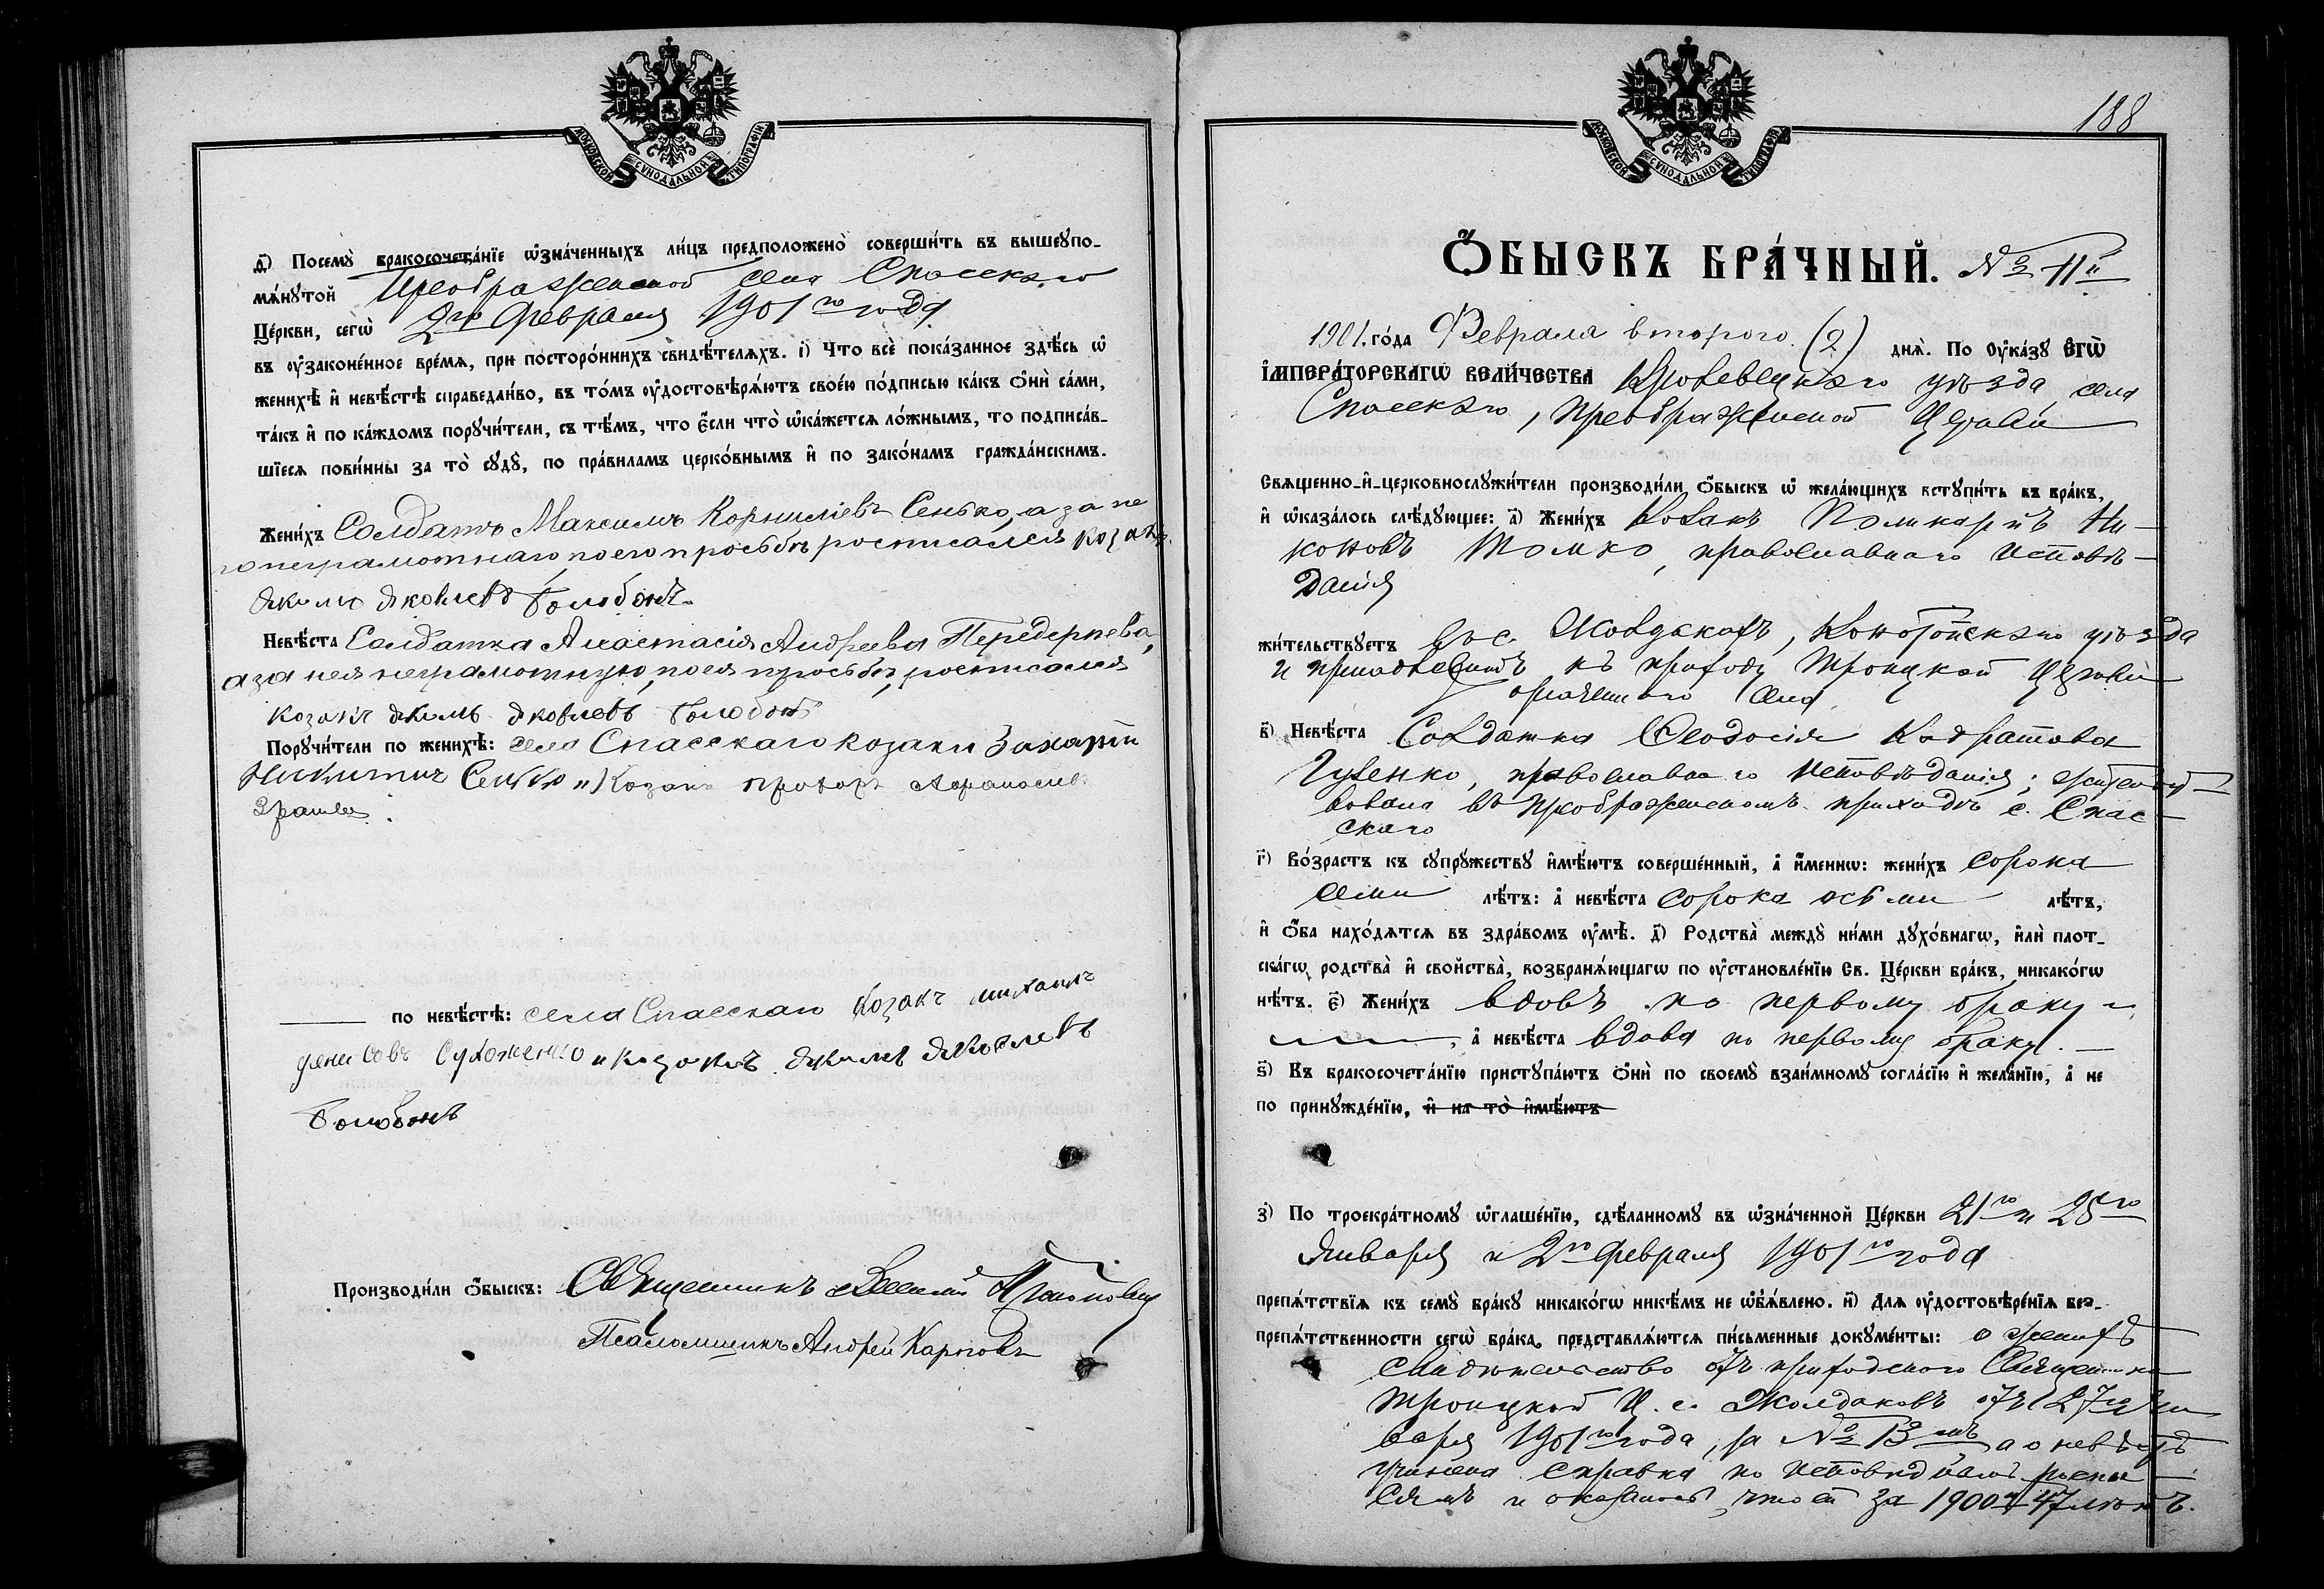 МОСКОВСКОЙ СѴНОДАЛЬНОЙ ТИПОГРАФІИ
д҃) Посемꙋ̀ бракосочета́нїе ѡ҆зна́ченныхъ ли́цъ предположено̀ соверши́ть въ вышеꙋпо-
мѧ́нꙋтой Преображенской села Спасскаго
Це́ркви, сегѡ̀ 2го Февраля 1901го года
въ ᲂу҆зако́ненное вре́мѧ, при посторо́ннихъ свидѣ́телѧхъ. і҃) Что̀ всѐ пока́занное здѣ́сь ѡ҆
женихѣ̀ и҆ невѣ́стѣ справедли́во, въ то́мъ ᲂу҆достовѣрѧ́ютъ свое́ю по́дписью ка́къ ѻ҆нѝ са́ми,
та́къ и҆ по ка́ждомъ порꙋчи́тели, съ тѣ́мъ, что є҆́сли что̀ ѡ҆ка́жетсѧ ло́жнымъ, то подписа́в-
шїесѧ пови́нны за то̀ сꙋдꙋ̀, по пра́виламъ церко́внымъ и҆ по зако́намъ гражда́нскимъ.
Жени́хъ Солдатъ Максимъ Корниліевъ Сенько, а за не
го неграмотнаго, по его просьбѣ росписался козакъ
Якимъ Яковлевъ Голобокъ
Невѣ́ста Солдатка Анастасія Андреева Передереева,
а за нея неграмотную, по ея просьбѣ, росписался
козакъ Якимъ Яковлевъ Голобокъ
Порꙋчи́тели по женихѣ̀: села Спасскаго козаки Захарій
Никитичъ Сенько и Козакъ
по невѣ́стѣ: села Спасскаго Козакъ михаилъ
денисовъ Сухоженко и козакъ Якимъ Яковлевъ
Голобокъ
Производи́ли ѻ҆́быскъ: Священникъ Василій
Псаломщикъ Андрей Карповъ
188
МОСКОВСКОЙ СѴНОДАЛЬНОЙ ТИПОГРАФІИ
Ѻ҆́БЫСКЪ БРА́ЧНЫЙ. № 11й
1901. го́да Февраля второго (2) днѧ̀. По Оу҆ка́зꙋ Є҆гѡ̀
І҆мпера́торскагѡ вели́чества Кролевецкаго уѣзда села
Спасскаго, Преображенской Церкви
Свѧще́нно-и҆-церковнослꙋжи́тели производи́ли ѻ҆́быскъ ѡ҆ жела́ющихъ встꙋпи́ть въ бра́къ,
и҆ ѡ҆каза́лось слѣ́дꙋющее: а҃) Жени́хъ Козакъ Поликарпъ Ни-
коновъ Томко, православнаго исповѣ-
данія
жи́тельствꙋетъ въ с. Жолдакахъ, Конотопскаго уѣзда
и принадлежитъ къ приходу Троицкой Церкви
означеннаго села
в҃) Невѣ́ста Солдатка Ѳеодосія Кодратова
Гузенко, православнаго исповѣданія; жительст-
вовала въ Преображенскомъ приходѣ с. Спас-
скаго
г҃) Во́зрастъ къ сꙋпрꙋ́жествꙋ и҆мѣ́ютъ соверше́нный, а҆ и҆́менно: жени́хъ сорока
семи лѣ́тъ: а҆ невѣ́ста сорока осьми лѣ́тъ,
и҆ ѻ҆́ба нахо́дѧтсѧ въ здра́вомъ ᲂу҆мѣ̀. д҃) Родства̀ междꙋ̀ ни́ми дꙋхо́внагѡ, и҆лѝ плот-
ска́гѡ родства̀ и҆ сво́йства̀, возбранѧ́ющагѡ по ᲂу҆становле́нїю Св. Це́ркви бра́къ, никако́гѡ
нѣ́тъ. є҃) Жени́хъ вдовъ по первому браку
, а҆ невѣ́ста вдова по первому браку.
ѕ҃) Къ бракосочета́нїю пристꙋпа́ютъ ѻ҆нѝ по своемꙋ̀ взаи́мномꙋ согла́сїю и҆ жела́нїю, а҆ не
по принꙋжде́нїю, и҆ на то̀ и҆мѣ́ютъ
з҃) По троекра́тномꙋ ѡ҆глаше́нїю, сдѣ́ланномꙋ въ ѡ҆зна́ченной Це́ркви 21го и 28го
Января и 2го Февраля 1901го года
препѧ́тствїѧ къ семꙋ̀ бра́кꙋ никако́гѡ никѣ́мъ не ѡ҆б̾ѧ́влено. и҃) Для ᲂу҆достовѣре́нїѧ без-
препѧ́тственности сегѡ̀ бра́ка, представлѧ́ютсѧ пи́сьменные докꙋме́нты: о женихѣ
свидѣтельство отъ приходскаго Священника
Троицкой Ц. с. Жолдаковъ отъ 27го Ян
варя 1901го года, за № 13мъ а о невѣстѣ
учинена справка по исповѣднымъ роспи-
сямъ и оказалось, что ей за 1900й 47 лѣтъ.